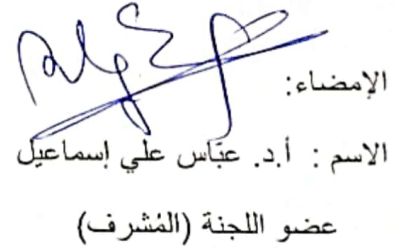 الإمضاء:
الاسم : أ.د. عبّاس علي إسماعيل
عضو اللجنة (المُشرف)